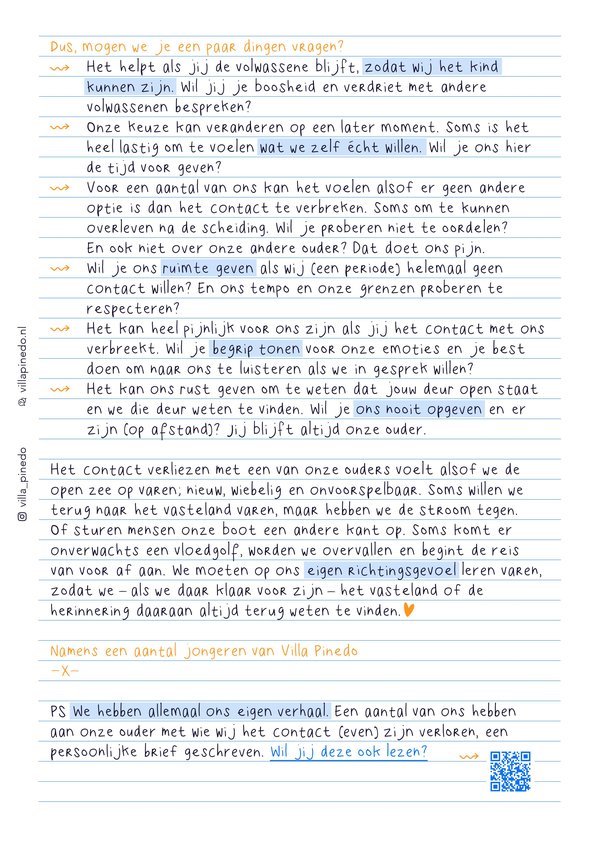 Dus, mogen we je een paar dingen vragen?
Het helpt als jij de volwassene blijft, zodat wij het kind
kunnen zijn. Wil jij je boosheid en verdriet met andere
volwassenen bespreken?
Onze keuze kan veranderen op een later moment. Soms is het
heel lastig om te voelen wat we zelf écht willen. Wil je ons hier
de tijd voor geven?
Voor een aantal van ons kan het voelen alsof er geen andere
optie is dan het contact te verbreken. Soms om te kunnen
overleven na de scheiding. Wil je proberen niet te oordelen?
En ook niet over onze andere ouder? Dat doet ons pijn.
Wil je ons ruimte geven als wij (een periode) helemaal geen
contact willen? En ons tempo en onze grenzen proberen te
respecteren?
Het kan heel pijnlijk voor ons zijn als jij het contact met ons
verbreekt. Wil je begrip tonen voor onze emoties en je best
doen om naar ons te luisteren als we in gesprek willen?
Het kan ons rust geven om te weten dat jouw deur open staat
en we die deur weten te vinden. Wil je ons nooit opgeven en er
zijn (op afstand)? Jij blijft altijd onze ouder.
Het contact verliezen met een van onze ouders voelt alsof we de
open zee op varen; nieuw, wiebelig en onvoorspelbaar. Soms willen we
terug naar het vasteland varen, maar hebben we de stroom tegen.
Of sturen mensen onze boot een andere kant op. Soms komt er
onverwachts een vloedgolf, worden we overvallen en begint de reis
van voor af aan. We moeten op ons eigen richtingsgevoel leren varen,
zodat we – als we daar klaar voor zijn – het vasteland of de
herinnering daaraan altijd terug weten te vinden.
Namens een aantal jongeren van Villa Pinedo
-X-
PS We hebben allemaal ons eigen verhaal. Een aantal van ons hebben
aan onze ouder met wie wij het contact (even) zijn verloren, een
persoonlijke brief geschreven. Wil jij deze ook lezen?
villapinedo.nl
villa_pinedo